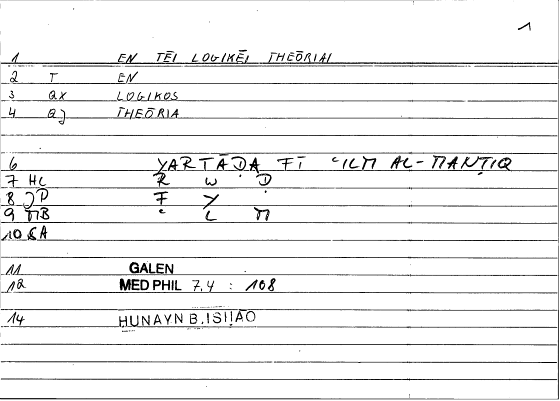 1
1 EN TĒI LOGIKĒI THEŌRIAI
2 T EN
3 QX LOGIKOS
4 QJ THEŌRIA
6 YARTĀḌA FĪ ʿILM AL-MANṬIQ
7 HL R W Ḍ
8 JP F Y
9 MB ʿ L M
10 SA
11 GALEN
12 MED PHIL 7.4 : 108
14 ḤUNAYN B. ISḤĀQ